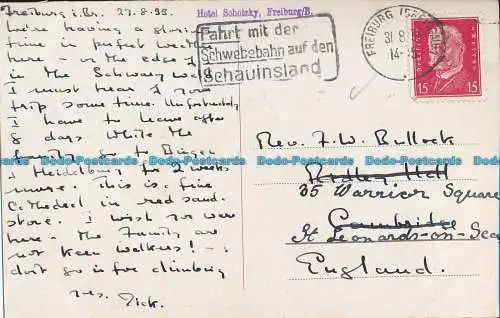 Freiburg i. Br. 27.8.33.
We're having a glorious
time in perfect weather
here - on the edge of
in the Schwarzwald
I must hear of your
trip some time. Unfortunately
I have to leave after
8 days while the
family go to Bingen
& Heidelburg for 2 weeks
more. This is a fine
Cathedral in red sand-
stone. I wish you were
here - the family are
not keen walkers! -
dont go in for climbing
yrs. Dick.
Hotel Sohotzky, Freiburg/B.
Fahrt mit der
Schwebebahn auf den
Schauinsland
FREIBURG
31.8
14-
15 15
Rev. F. W. Bullock
Ridley Hall
35 Warrior Square
Cambridge
St Leonards-on-Sea
England.
Dodo-Postcards